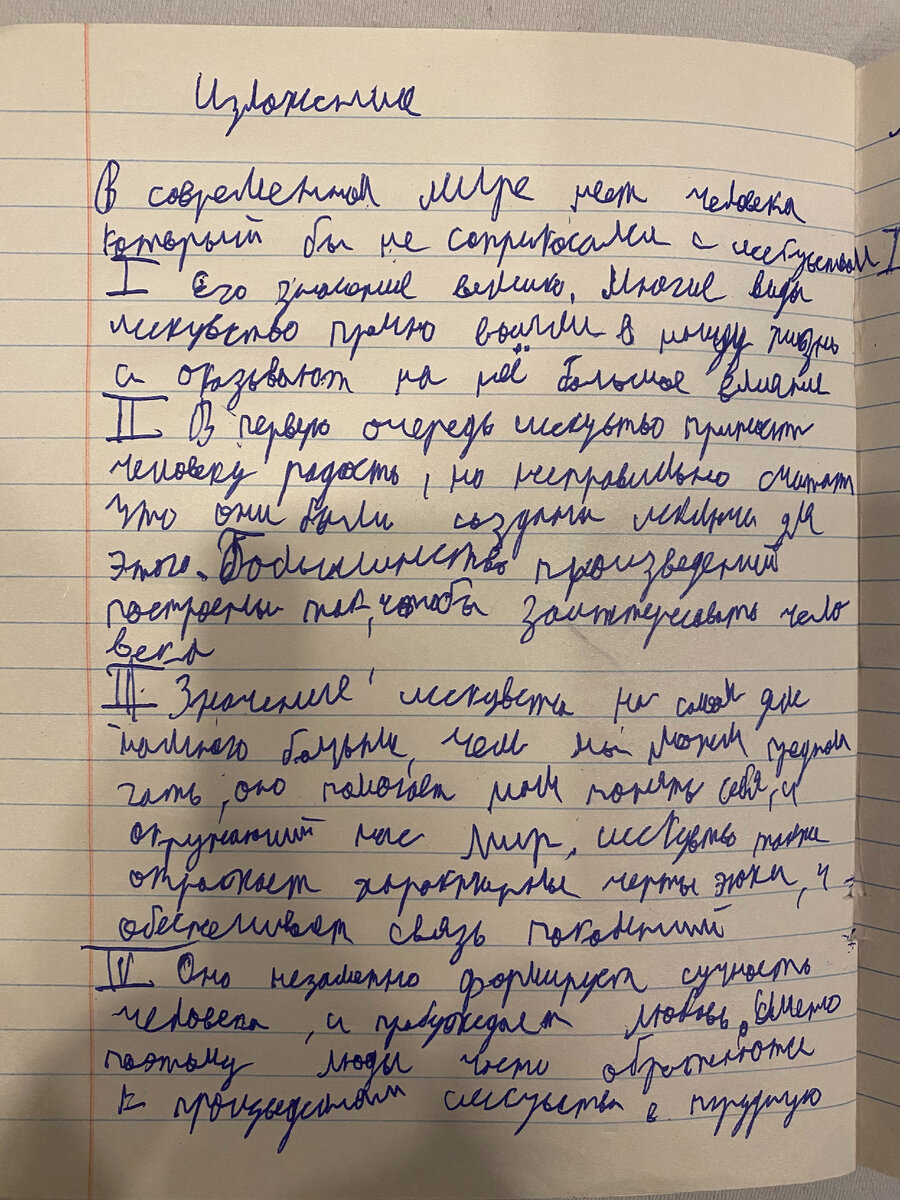 Изложение
В современном мире нет человека
который бы не соприкосался с искуством
I Его значение велико. Многие виды
искувство прочно вошли в нашу жизнь
и оказывают на неё большое влияние
II В первую очередь искуство приносит
человеку радость, но неправильно считать
что они были созданы для
этого. Большинство произведений
построены так, чтобы заинтересовать чело
века
III. Значение искувства на самом деле
намного больше, чем мы можем предпола
гать, оно помогает нам понять себя, и
окружающий нас мир, искуство также
отражает характерные черты эпохи, и
обеспечивает связь поколений
IV Оно незаметно формирует сущность
человека, и пробуждает любовь. Именно
поэтому люди часто обращаются
к произведениям искуства в трудную